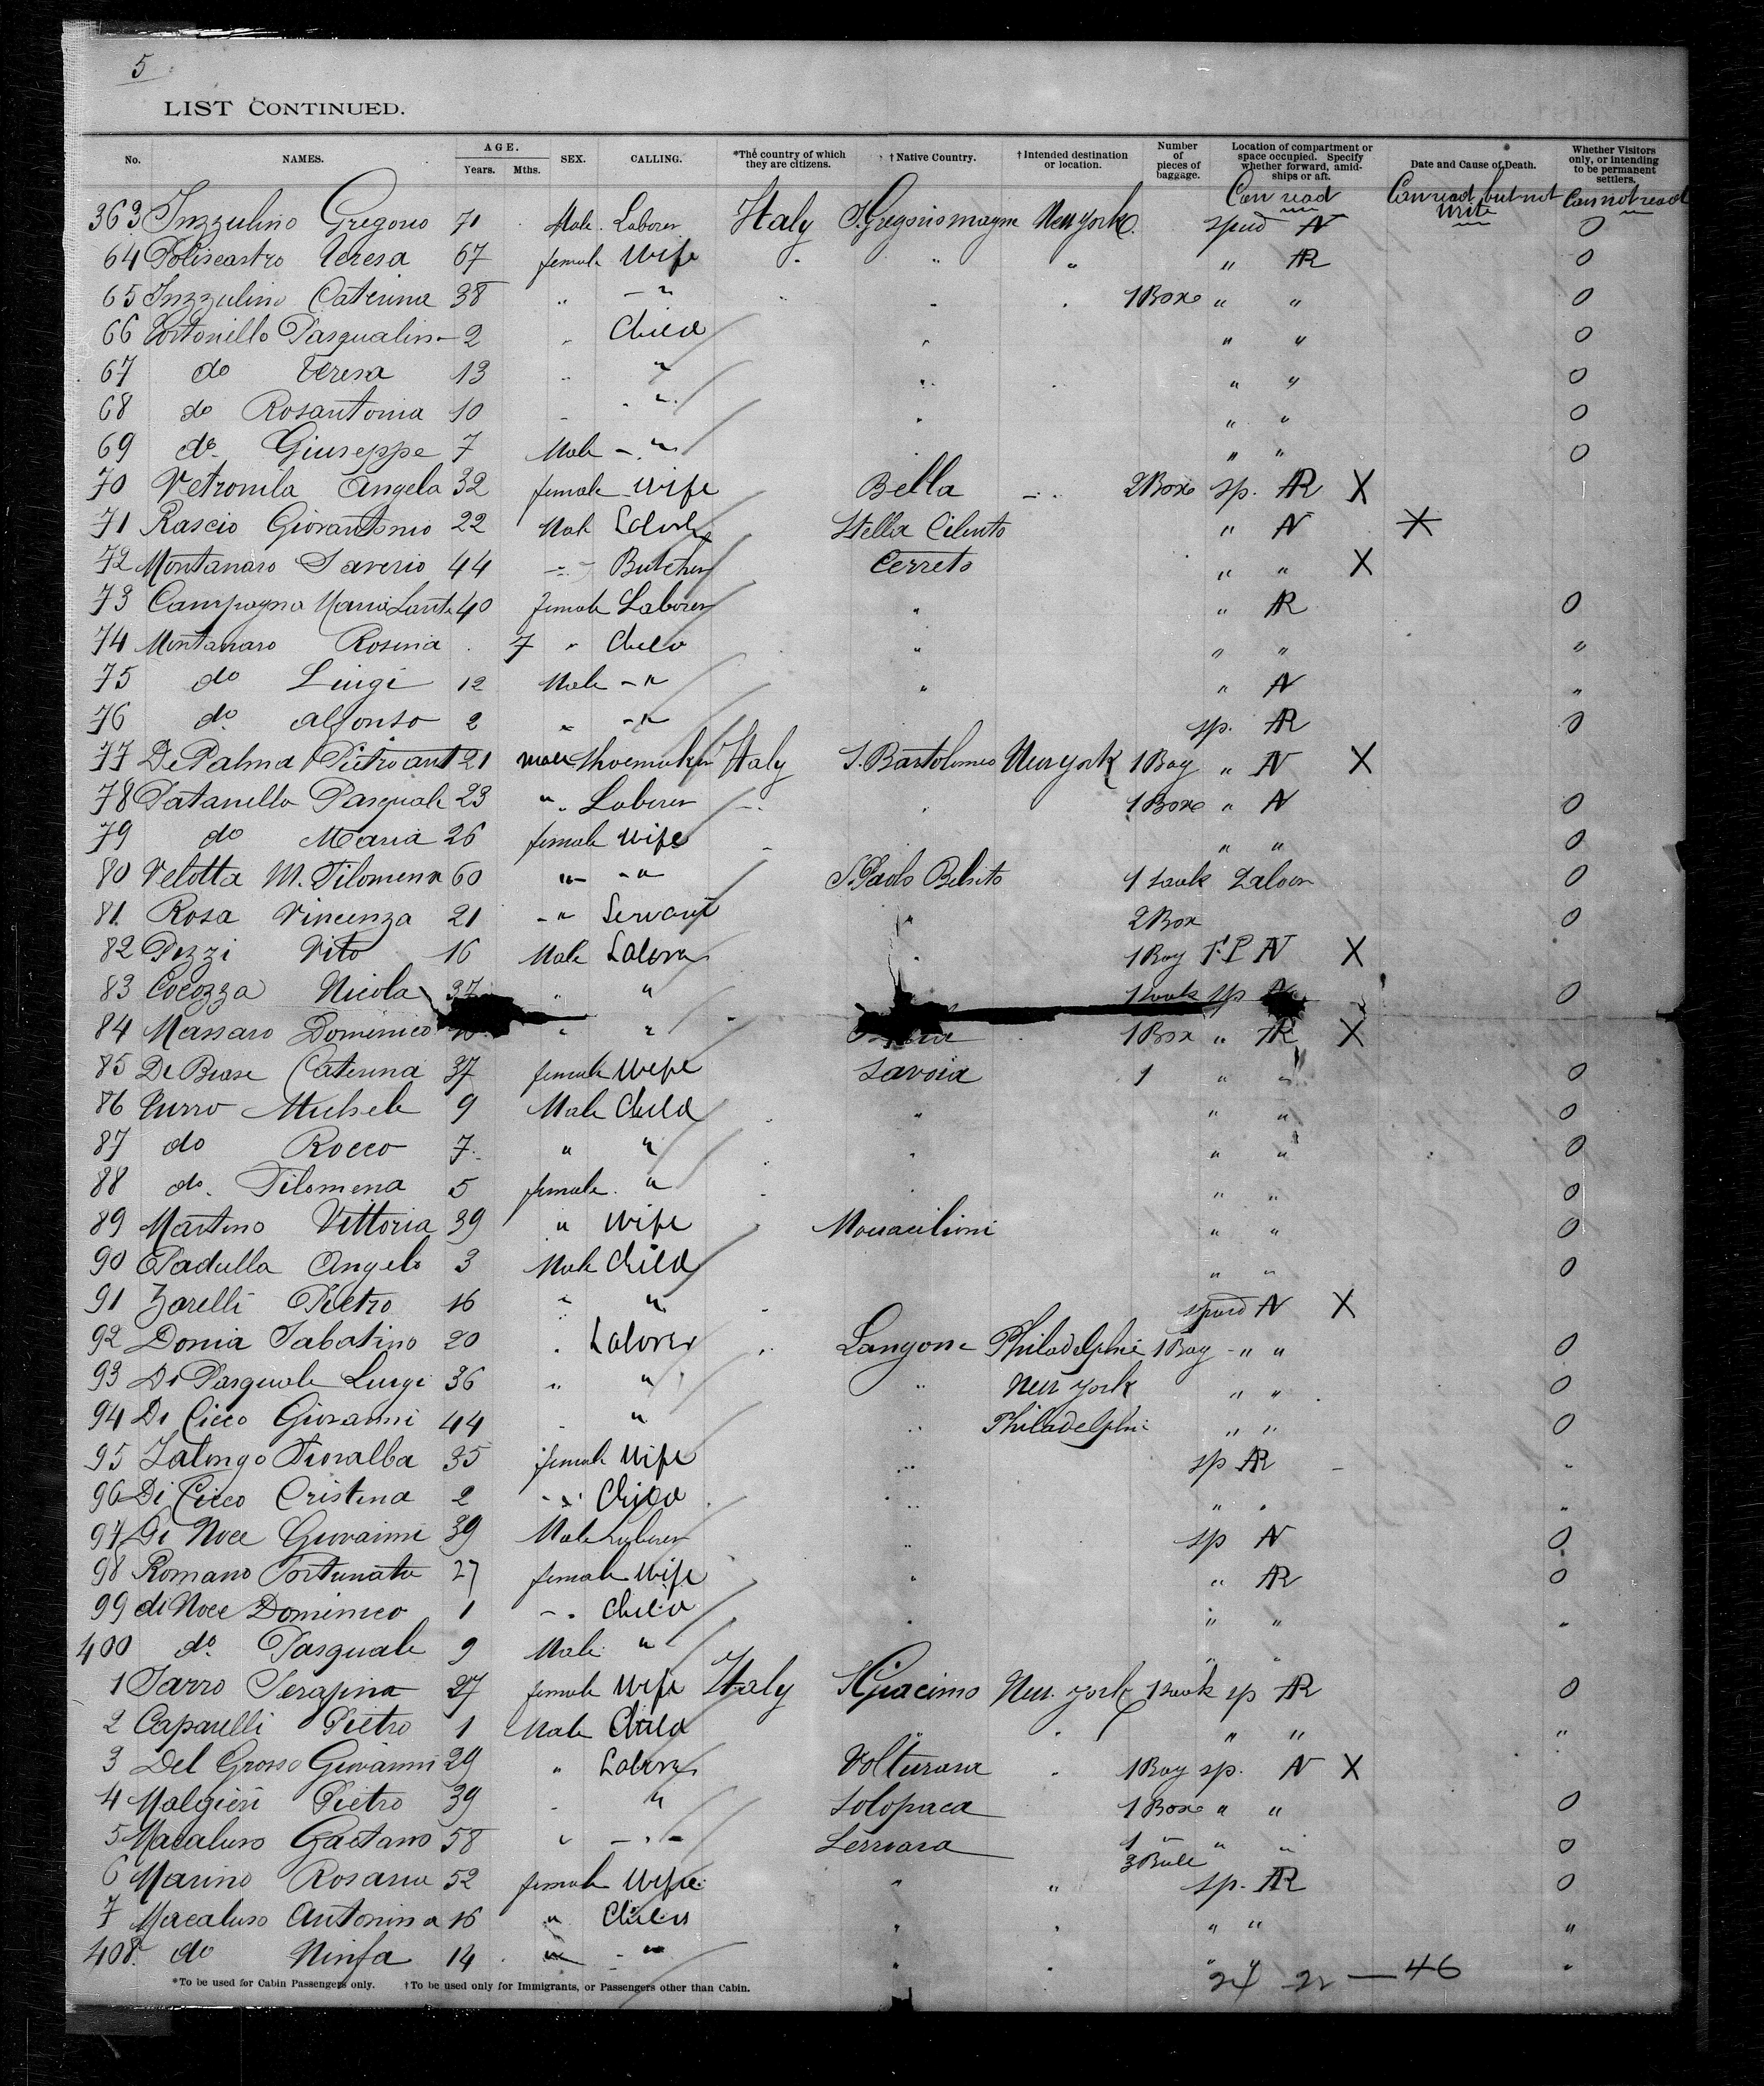 5
LIST CONTINUED.
No. NAMES. AGE. Years. Mths. SEX. CALLING. *The country of which they are citizens. †Native Country. †Intended destination or location. Number of pieces of baggage. Location of compartment or space occupied. Specify whether forward, amidships or aft. Date and Cause of Death. Whether Visitors only, or intending to be permanent settlers.
Can read Can read but not write Can not read
363 Inzzulino Gregorio 71 Male Laborer Italy S. Gregorio magn New york N 0
64 Poliscastro Teresa 67 female Wife " " " " R 0
65 Inzzulino Caterina 38 " - " " " " 1 Boxe " " 0
66 Pasqualin 2 " Child " " " 0
67 do Teresa 13 " " " " " 0
68 do Rosantonia 10 " " " " " 0
69 do Giuseppe 7 Male - " " " 0
70 Vetronila Angela 32 female Wife Bella - " 2 Boxe sp. R X
71 Rascio Giovantonio 22 Male Labor Stella Cilento " N X
72 Montanaro Saverio 44 - " Butcher Cerreto " " X
73 Campagna Maria Sant 40 female Laborer " " R 0
74 Montanaro Rosina 7 " Child " " " "
75 do Luigi 12 Male - " " " N "
76 do Alfonso 2 " - " sp. R 0
77 De Palma Pietroant 21 male Shoemaker Italy S. Bartolomeo New york 1 Bag " N X
78 Patanella Pasquale 23 " Laborer - " " 1 Boxe " N 0
79 do Maria 26 female wife " " " 0
80 Velotta M. Filomena 60 " - " S. Paolo Belsito 1 0
81 Rosa Vincenza 21 - " Servant " 2 Box 0
82 Pezzi Vito 16 Male Labora " 1 Bag N X
83 Cocozza Nicola 37 " " 1 sp 0
84 Massaro Domenico " " 1 Box " R X
85 De Biase Caterina 37 female Wife Savoia 1 " " 0
86 Michele 9 Male Child " " " 0
87 do Rocco 7 " " " " " 0
88 do. Filomena 5 female " " " " 0
89 Martino Vittoria 39 " Wife " " 0
90 Padulla Angelo 3 Male Child " " 0
91 Zarelli Pietro 16 " " " N X
92 Donia Sabatino 20 " Laborer " Langone Philadelphie 1 Bag - " " 0
93 Di Pasquale Luigi 36 " " " New york " " 0
94 Di Cicco Giovanni 44 " " Philadelphi " " 0
95 Fioralba 35 female Wife " sp R "
96 Di Cicco Cristina 2 - " Child " " " "
97 Di Noce Giovanni 39 Male Laborer " sp N 0
98 Romano Fortunata 27 female Wife " " R 0
99 di Noce Domenico 1 - " Child " " " "
400 do Pasquale 9 Male " " "
1 Sarro Serafina 27 female Wife Italy S. Giacimo New. york 1 sp R 0
2 Caparelli Pietro 1 Male Child " " " "
3 Del Grosso Giovanni 29 " Labora Volturara " 1 Bag sp. N X
4 Malgieri Pietro 39 " " Solopaca 1 Boxe " " 0
5 Macaluso Gaetano 58 " - " - 1 " " " 0
6 Marino Rosaria 52 female Wife " " 3 sp. R 0
7 Macaluso Antonina 16 " Child " " " " "
408 do Ninfa 14 " - " " " " "
24 22 — 46
*To be used for Cabin Passengers only. †To be used only for Immigrants, or Passengers other than Cabin.